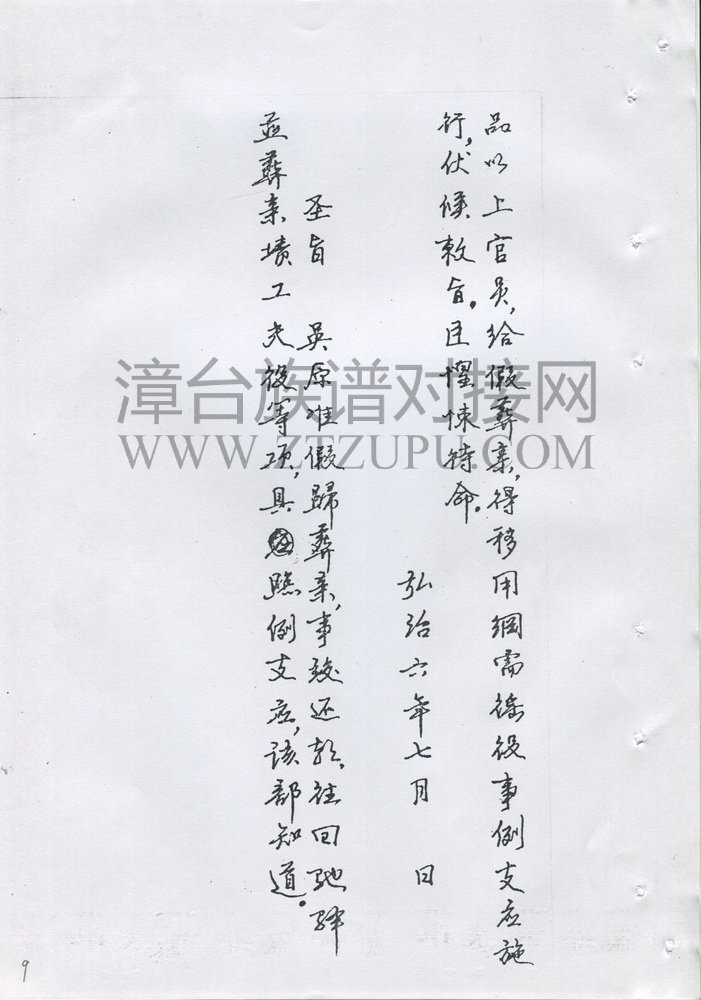 品以上官员,给假葬亲,得移用纲需徭役事例支应施
行,伏候敕旨。臣惶悚待命。
弘治六年七月 日
圣旨 吴原准假归葬亲,事竣还朝,往回驰驿
并葬亲坟工夫役等项,具照例支应,该部知道。
漳台族谱对接网
WWW.ZTZUPU.COM
9